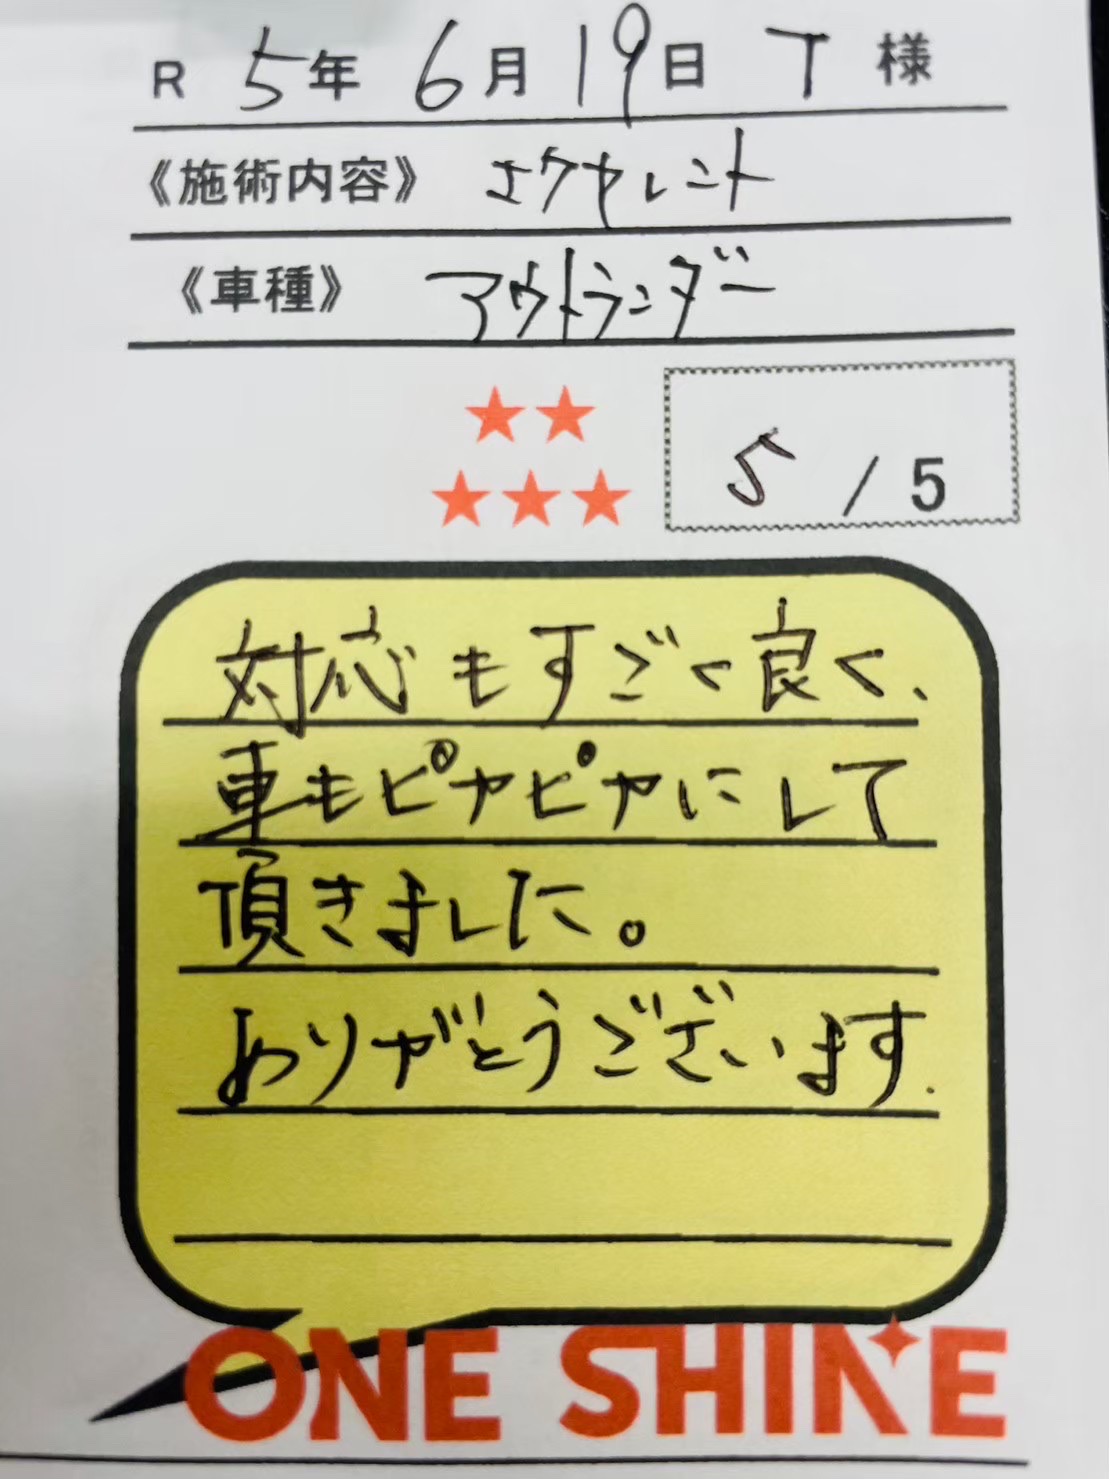 R 5年 6月19日 T 様
《施術内容》 エクセレント
《車種》 アウトランダー
★★
★★★
5 / 5
対応もすごく良く、
車もピカピカにして
頂きました。
ありがとうございます.
ONE SHINE